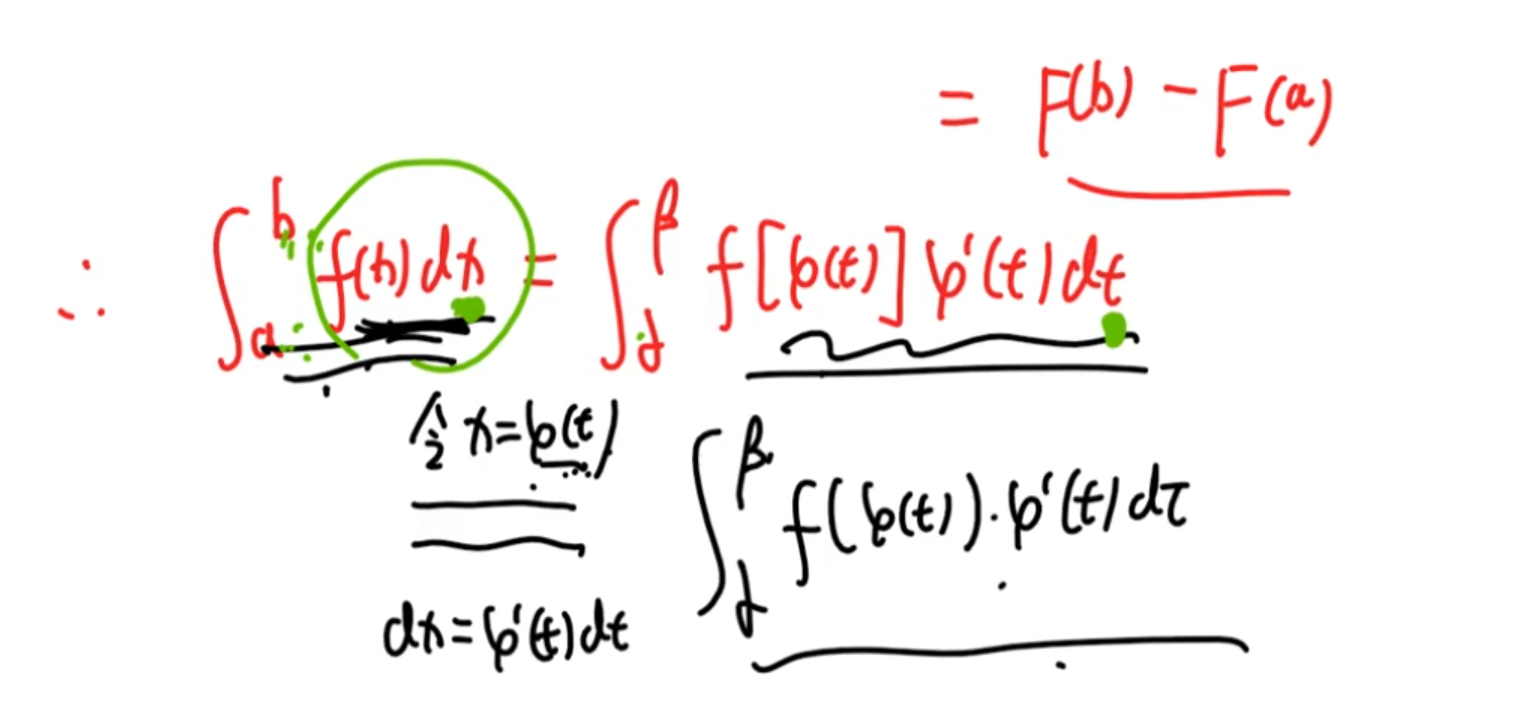 = F(b) - F(a)
∴ ∫_a^b f(x)dx = ∫_α^β f[φ(t)]φ'(t)dt
令 x=φ(t)
∫_α^β f(φ(t))·φ'(t)dt
dx=φ'(t)dt